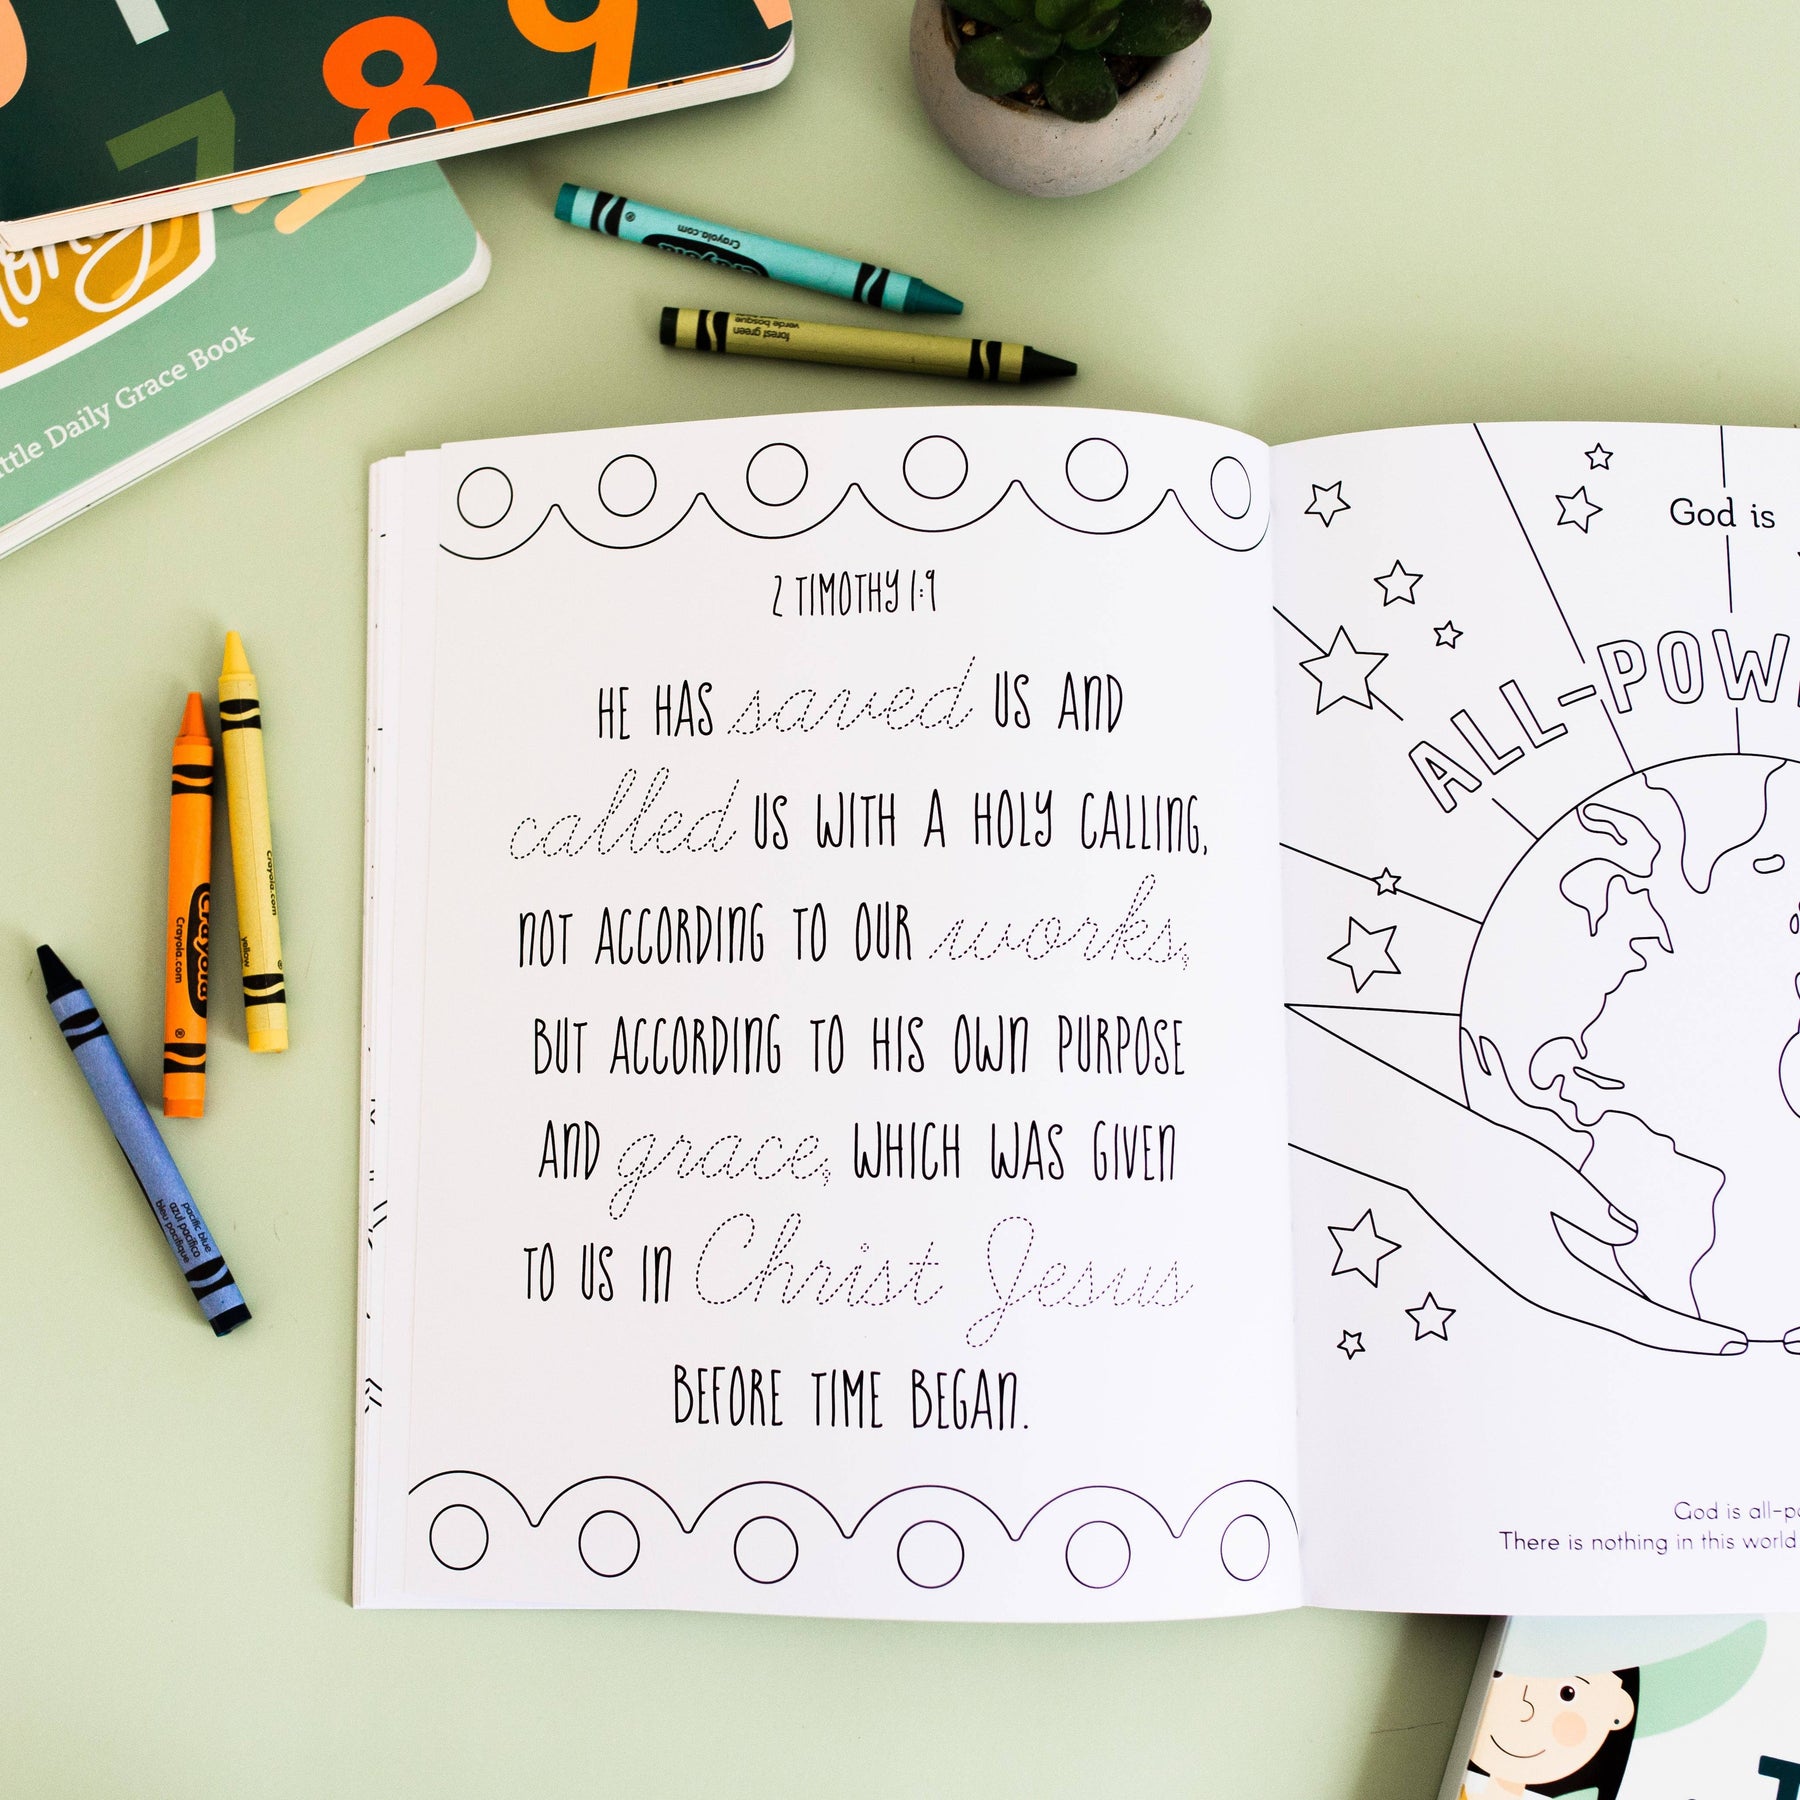 7 8 9
ttle Daily Grace Book
Crayola.com
Crayola
forest green
verde bosque
2 TIMOTHY 1:9
HE HAS saved US AND
called US WITH A HOLY CALLING,
NOT ACCORDING TO OUR works,
BUT ACCORDING TO HIS OWN PURPOSE
AND grace, WHICH WAS GIVEN
TO US IN Christ Jesus
BEFORE TIME BEGAN.
God is
ALL-POW
God is all-po
There is nothing in this world
Crayola
Crayola.com
Crayola.com
yellow
pacific blue
azul pacífico
bleu pacifique